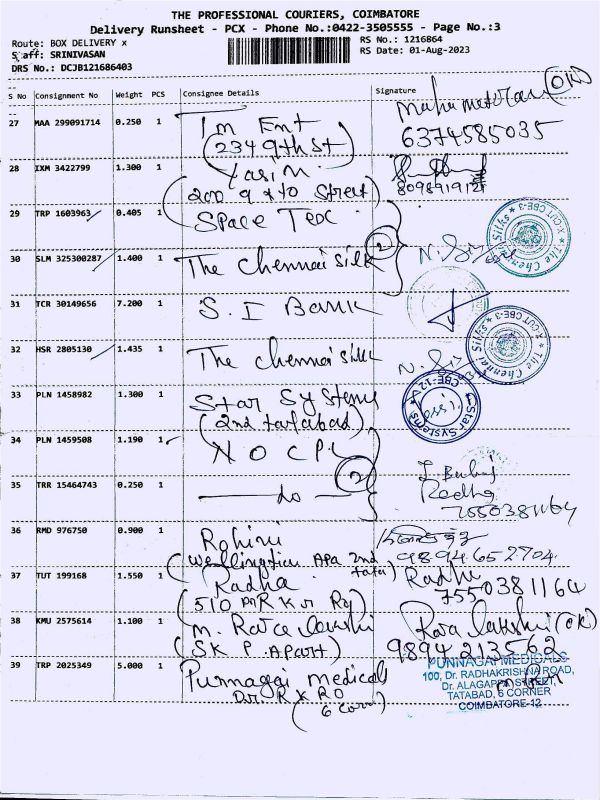 THE PROFESSIONAL COURIERS, COIMBATORE
Delivery Runsheet - PCX - Phone No.:0422-3505555 - Page No.:3
Route: BOX DELIVERY x
Staff: SRINIVASAN
DRS No.: DCJB121686403
RS No.: 1216864
RS Date: 01-Aug-2023
S No Consignment No Weight PCS Consignee Details Signature
27 MAA 299091714 0.250 1 Tm Ent (OK)
(234 9th St) 6374585035
28 IXM 3422799 1.300 1 Yasin
(200 9 Street) 8098919121
29 TRP 1603963 0.405 1 Space Tex
30 SLM 325300287 1.400 1 The Chennai Silk 2
The Chennai Silks * X-CUT CBE-3 *
31 TCR 30149656 7.200 1 S. I Bank
32 HSR 2805130 1.435 1 The Chennai Silk
The Chennai Silks * X-CUT CBE-3 *
33 PLN 1458982 1.300 1 Star Systems
(2nd tatabad)
Star Systems * CBE-12 *
34 PLN 1459508 1.190 1 N O C P L
35 TRR 15464743 0.250 1 — do — 2
Radha
7550381164
36 RMD 976750 0.900 1 Rohini
(Wellington Apa 2nd tata) 9894652704
37 TUT 199168 1.550 1 Radha Radha
(510 R K Rd) 7550381164
38 KMU 2575614 1.100 1 M. (OK)
(S K P. Apart) 9894213562
39 TRP 2025349 5.000 1 Punnagai medicals
Dr. R K RD
(6 Corr)
PUNNAGAI MEDICALS
100, Dr. RADHAKRISHNA ROAD,
Dr. ALAGAPPA STREET,
TATABAD, 6 CORNER
COIMBATORE-12